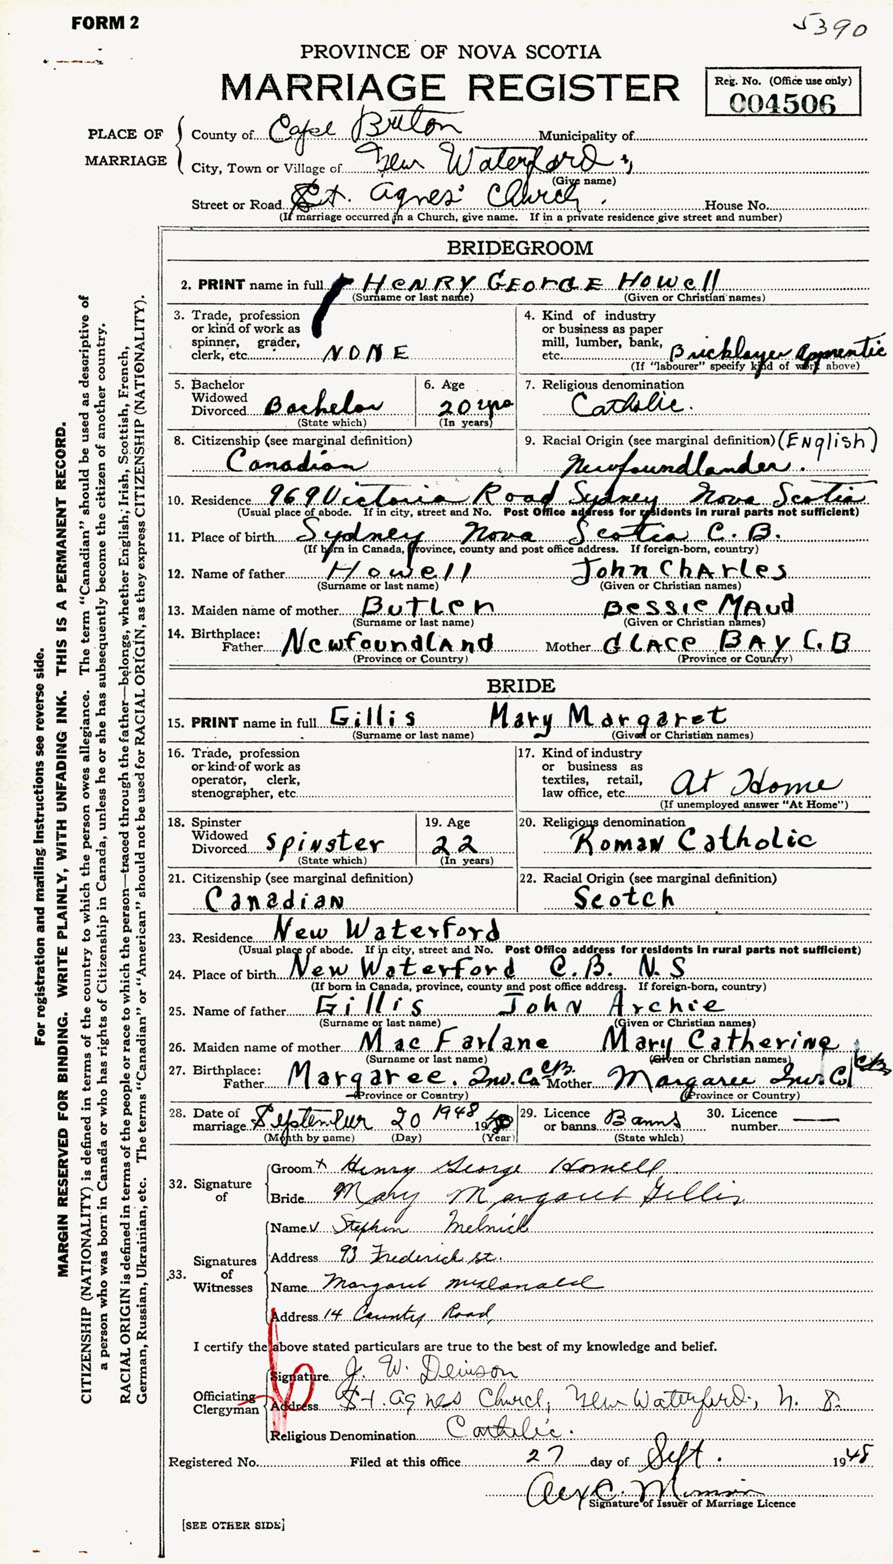 FORM 2
5390
PROVINCE OF NOVA SCOTIA
MARRIAGE REGISTER
Reg. No. (Office use only)
004506
PLACE OF MARRIAGE
County of Cape Breton Municipality of
City, Town or Village of New Waterford
(Give name)
Street or Road St. Agnes' Church. House No.
(If marriage occurred in a Church, give name. If in a private residence give street and number)
BRIDEGROOM
2. PRINT name in full HENRY GEORGE HOWELL
(Surname or last name) (Given or Christian names)
3. Trade, profession or kind of work as spinner, grader, clerk, etc. NONE
4. Kind of industry or business as paper mill, lumber, bank, etc. Bricklayer Apprentic
(If "labourer" specify kind of work above)
5. Bachelor Widowed Divorced Bachelor
(State which)
6. Age 20 yrs
(In years)
7. Religious denomination Catholic.
8. Citizenship (see marginal definition) Canadian
9. Racial Origin (see marginal definition) (ENGLISH) Newfoundlander.
10. Residence 969 Victoria Road Sydney Nova Scotia
(Usual place of abode. If in city, street and No. Post Office address for residents in rural parts not sufficient)
11. Place of birth Sydney Nova Scotia C.B.
(If born in Canada, province, county and post office address. If foreign-born, country)
12. Name of father Howell John Charles
(Surname or last name) (Given or Christian names)
13. Maiden name of mother Butler Bessie Maud
(Surname or last name) (Given or Christian names)
14. Birthplace: Father Newfoundland Mother GLACE BAY C.B
(Province or Country) (Province or Country)
BRIDE
15. PRINT name in full Gillis Mary Margaret
(Surname or last name) (Given or Christian names)
16. Trade, profession or kind of work as operator, clerk, stenographer, etc
17. Kind of industry or business as textiles, retail, law office, etc. At Home
(If unemployed answer "At Home")
18. Spinster Widowed Divorced Spinster
(State which)
19. Age 22
(In years)
20. Religious denomination Roman Catholic
21. Citizenship (see marginal definition) Canadian
22. Racial Origin (see marginal definition) Scotch
23. Residence New Waterford
(Usual place of abode. If in city, street and No. Post Office address for residents in rural parts not sufficient)
24. Place of birth New Waterford C.B. N.S
(If born in Canada, province, county and post office address. If foreign-born, country)
25. Name of father Gillis John Archie
(Surname or last name) (Given or Christian names)
26. Maiden name of mother Mac Farlane Mary Catherine
(Surname or last name) (Given or Christian names)
27. Birthplace: Father Margaree. Inv. Co CB Mother Margaree Inv. C CB
(Province or Country) (Province or Country)
28. Date of marriage September 20 1948 19
(Month by name) (Day) (Year)
29. Licence or banns Banns
(State which)
30. Licence number —
32. Signature of
Groom x Henry George Howell
Bride Mary Margaret Gillis
33. Signatures of Witnesses
Name Stephen Melnick
Address 93 Frederick st.
Name Margaret McDonald
Address 14 County Road
I certify the above stated particulars are true to the best of my knowledge and belief.
Officiating Clergyman
Signature J. W. Denison
Address St. Agnes Church, New Waterford, N. S.
Religious Denomination Catholic.
Registered No. Filed at this office 27 day of Sept. 1948
Alex C.
Signature of Issuer of Marriage Licence
[SEE OTHER SIDE]
For registration and mailing instructions see reverse side.
MARGIN RESERVED FOR BINDING. WRITE PLAINLY, WITH UNFADING INK. THIS IS A PERMANENT RECORD.
CITIZENSHIP (NATIONALITY) is defined in terms of the country to which the person owes allegiance. The term "Canadian" should be used as descriptive of
a person who was born in Canada or who has rights of Citizenship in Canada, unless he or she has subsequently become the citizen of another country.
RACIAL ORIGIN is defined in terms of the people or race to which the person—traced through the father—belongs, whether English, Irish, Scottish, French,
German, Russian, Ukrainian, etc. The terms "Canadian" or "American" should not be used for RACIAL ORIGIN, as they express CITIZENSHIP (NATIONALITY).